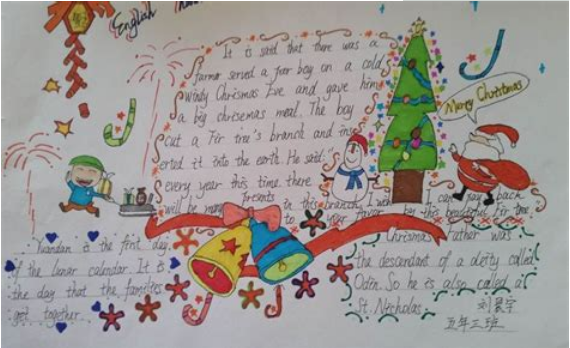 English
It is said that there was a
farmer served a poor boy on a cold
windy Chrismas Eve and gave him
a big chrisemas meal. The boy
cut a Fir tree's branch and ins
erted it into the earth. He said:"
every year this time. there
will be many presents in this branch, I wish I can pay back
to your favor by this beautiful Fir tree.
Merry Christmas
Yuandan is the first day
of the lunar calendar. It is
the day that the families
get together.
Christmas Father was
the descendant of a deity called
Odin. So he is also called a
St. Nicholas.
五年二班